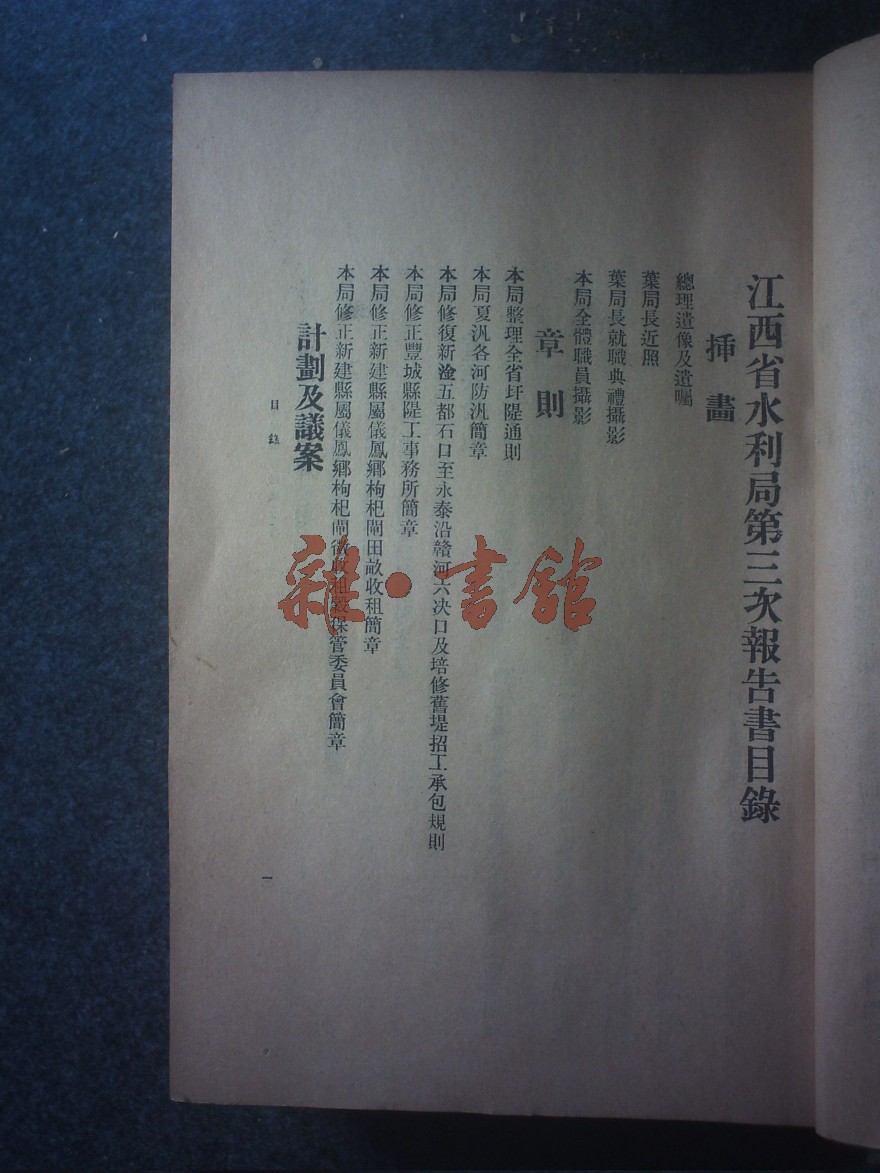 江西省水利局第三次報告書目錄
挿畫
總理遺像及遺囑
葉局長近照
葉局長就職典禮攝影
本局全體職員攝影
章則
本局整理全省圩隄通則
本局夏汛各河防汛簡章
本局修復新淦五都石口至永泰沿贛河六决口及培修舊堤招工承包規則
本局修正豐城縣隄工事務所簡章
本局修正新建縣屬儀鳳鄉枸杞閘田畝收租簡章
本局修正新建縣屬儀鳳鄉枸杞閘徵收租穀保管委員會簡章
計劃及議案
目錄
一
雜·書館